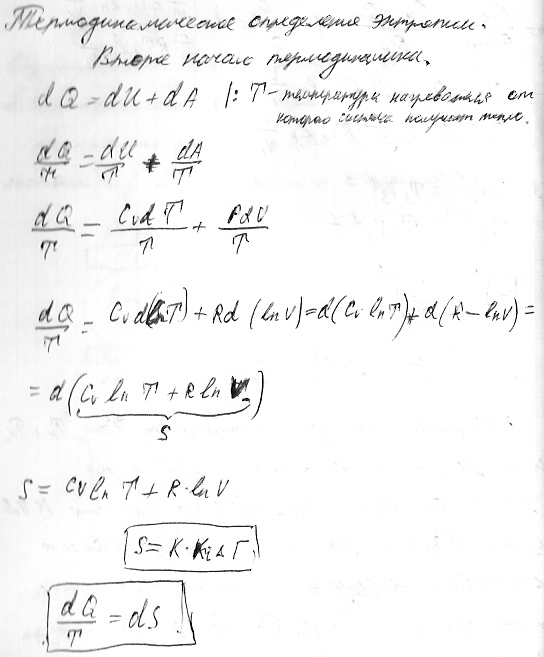 Термодинамическое определение энтропии.
Второе начало термодинамики.
dQ = dU + dA |: T – температура нагревателя от
которого система получает тепло.
dQ/T = dU/T + dA/T
dQ/T = CvdT/T + PdV/T
dQ/T = Cvd(lnT) + Rd(lnV) = d(Cv lnT) + d(R – lnV) =
= d(Cv ln T + R ln V)
S
S = Cv ln T + R·lnV
dQ/T = dS